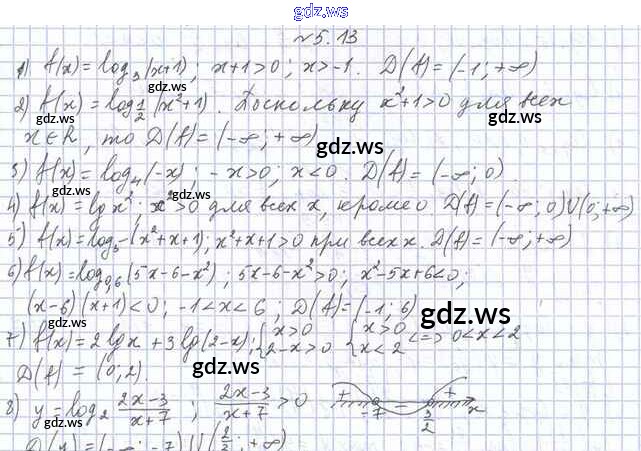 gdz.ws
№5.13
1) f(x) = log₃(x+1); x+1>0; x>-1. D(f)=(-1;+∞)
gdz.ws gdz.ws
2) f(x) = log_{1/2}(x²+1). Поскольку x²+1>0 для всех
x∈R, то D(f)=(-∞;+∞)
gdz.ws gdz.ws
3) f(x)=log₄(-x); -x>0; x<0. D(f)=(-∞;0).
gdz.ws gdz.ws
4) f(x)=lg x²; x²>0 для всех x, кроме 0. D(f)=(-∞;0)U(0;+∞)
5) f(x)=log₅(x²+x+1); x²+x+1>0 при всех x. D(f)=(-∞;+∞)
gdz.ws gdz.ws
6) f(x)=log_{0,6}(5x-6-x²); 5x-6-x²>0; x²-5x+6<0;
(x-6)(x+1)<0; -1<x<6; D(f)=(-1;6)
gdz.ws gdz.ws
7) f(x)=2lg x+3lg(2-x); {x>0 2-x>0 {x>0 x<2 <=> 0<x<2
D(f) = (0;2).
gdz.ws gdz.ws
8) y=log₂ (2x-3)/(x+7); (2x-3)/(x+7)>0 + -7 - 3/2 + x
D(x)=(-∞;-7)U(3/2;+∞)
gdz.ws gdz.ws